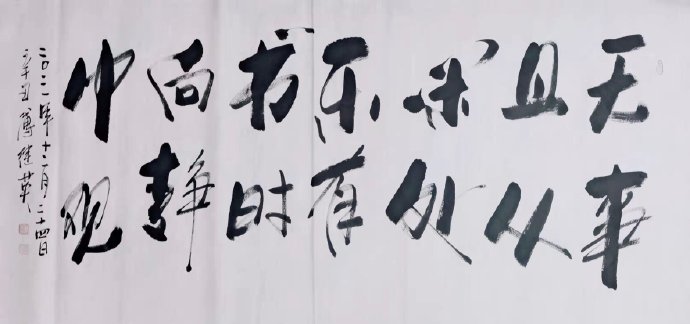 无事
且从
闲处
乐有
书时
向静
中观
二〇二一年十二月二十四日
辛丑傅继英